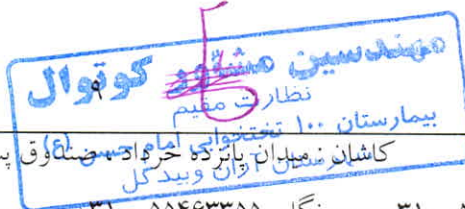 مهندسین مشاور کوتوال
نظارت مقیم
بیمارستان ۱۰۰ تختخوابی امام حسن (ع)
آران وبیدگل
کاشان: میدان پانزده خرداد، صندوق
۵۵۴۶۳۳۵۵